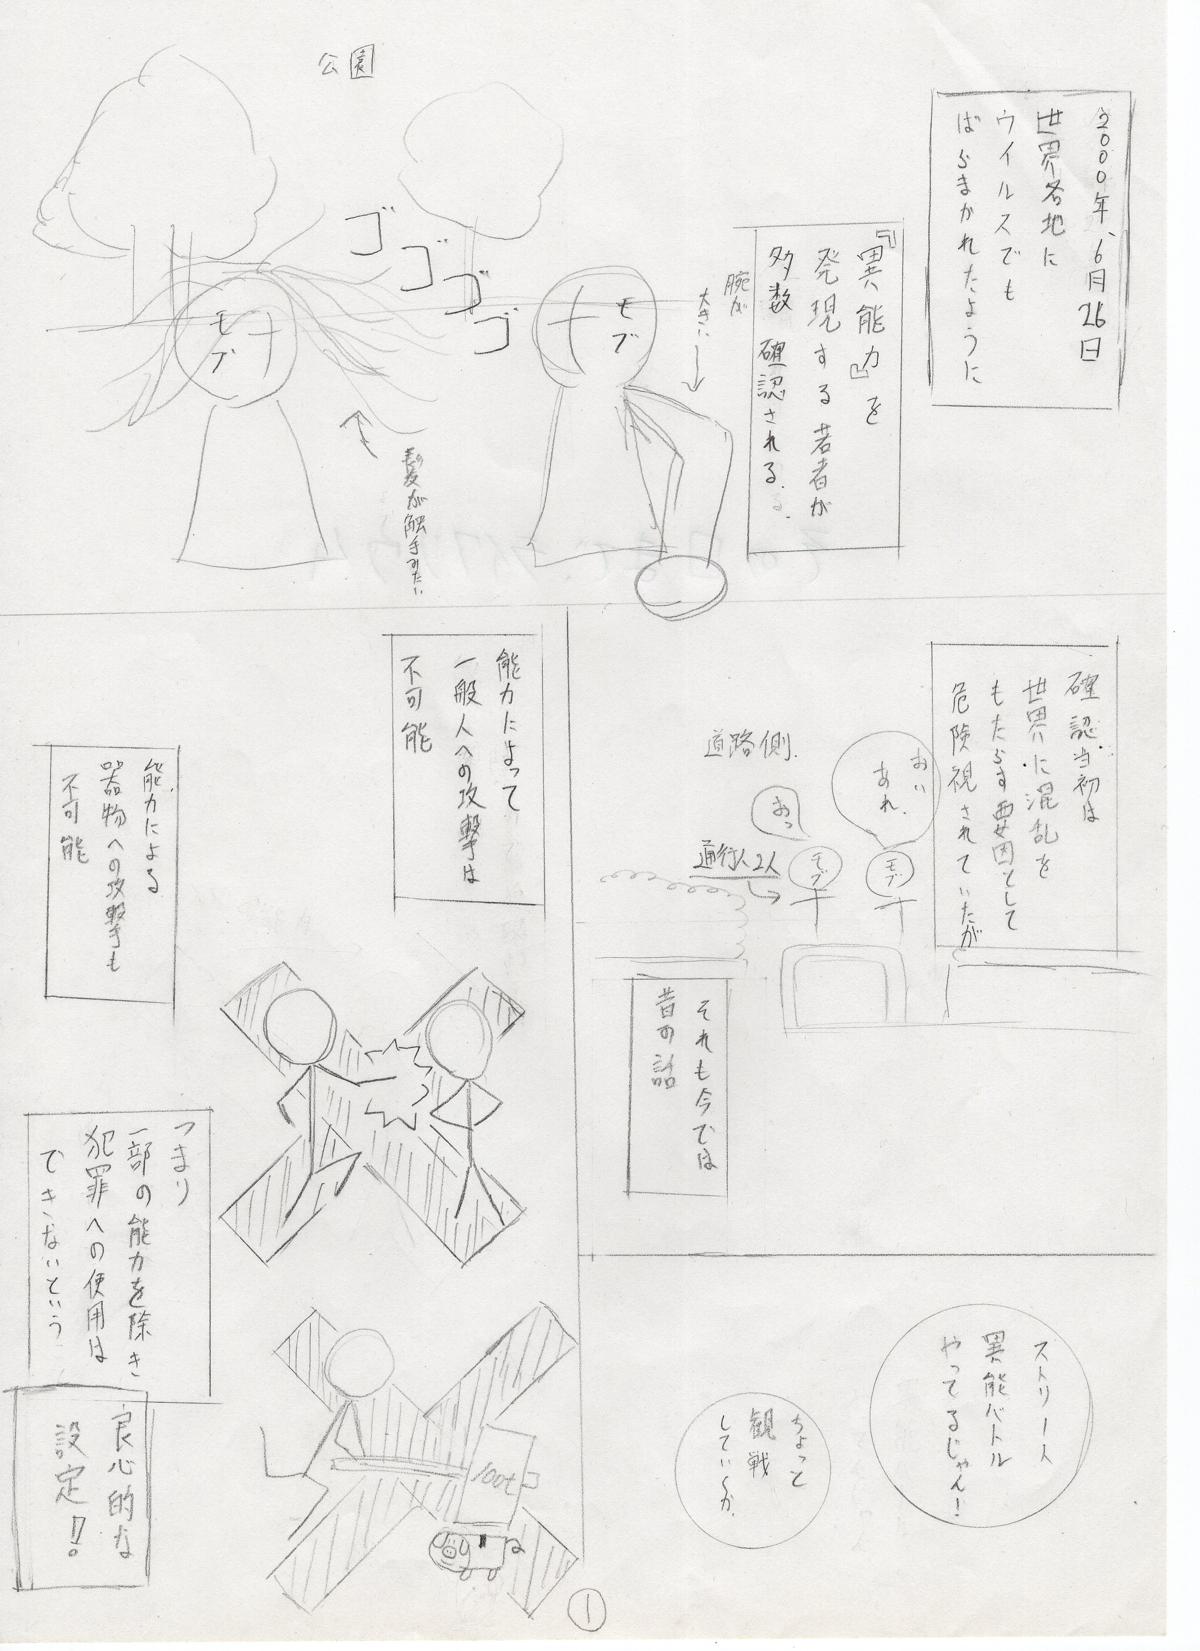 2000年、6月26日
世界各地に
ウイルスでも
ばらまかれたように
『異能力』を
発現する若者が
多数確認される.
腕が
大きい
公園
ゴゴゴゴ
モブ
モブ
髪が触手みたい
確認当初は
世界に混乱を
もたらす要因として
危険視されていたが
おい
あれ.
おっ
道路側.
通行人2人
モブ
モブ
それも今では
昔の話
ストリート
異能バトル
やってるじゃん!
ちょっと
観戦
していくか.
能力によって
一般人への攻撃は
不可能
能力による
器物への攻撃も
不可能
つまり
一部の能力を除き
犯罪への使用は
できないという
良心的な
設定!!
100t
1